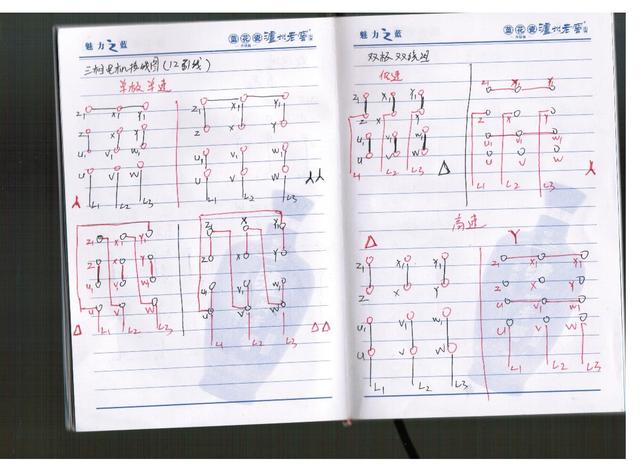 魅力之蓝
蓝花瓷 泸州老窖
三相电机接线图(12引线)
单极单速
Z1 X1 Y1
Z X Y
U1 V1 W1
U V W
L1 L2 L3
Z1 X1 Y1
Z X Y
U1 V1 W1
U V W
L1 L2 L3
Z1 X1 Y1
Z X Y
U1 V1 W1
U V W
L1 L2 L3
Δ
Z1 X Y1
Z X Y
U V1 W1
U V W
L1 L2 L3
ΔΔ
魅力之蓝
蓝花瓷 泸州老窖
双极双线速
低速
Z1 X1 Y1
Z X Y
U1 V1 W1
U V W
L1 L2 L3
Δ
Z1 X1 Y1
Z X Y
U1 V1 W1
U V W
L1 L2 L3
高速
Δ
Z1 X1 Y1
Z X Y
U1 V1 W1
U V W
L1 L2 L3
Y
Z1 X1 Y1
Z X Y
U1 V1 W1
U V W
L1 L2 L3